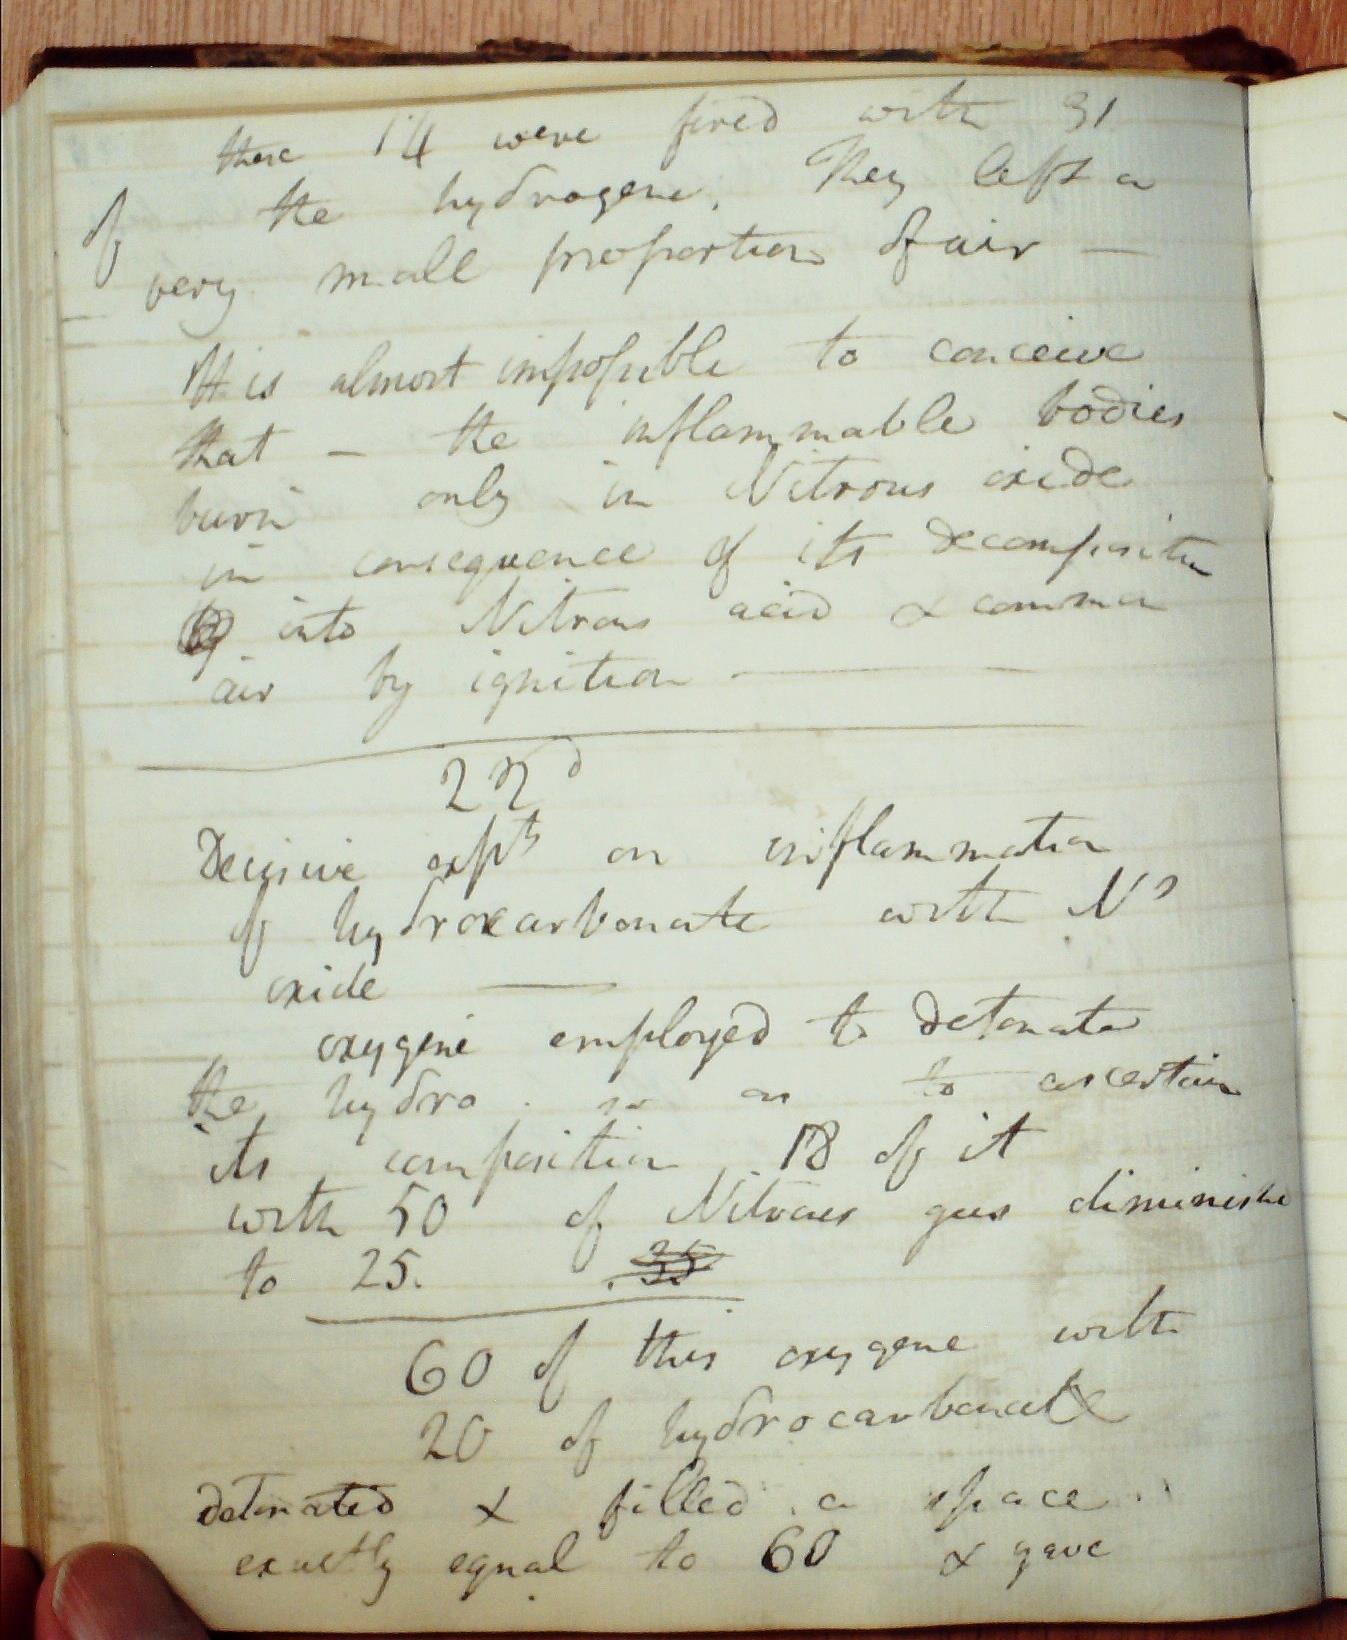 these 14 were fired with 31
of the hydrogene. They left a
very small proportion of air —
It is almost impossible to conceive
that – the inflammable bodies
burn only in Nitrous oxide
in consequence of its decomposition
into Nitrous acid & common
air by ignition —
2nd
Decisive expts on inflammation
of hydrocarbonate with Ns
oxide —
oxygene employed to detonate
the hydro. so as to ascertain
its composition 18 of it
with 50 of Nitrous gas diminishd
to 25. 35
60 of this oxygene with
20 of hydrocarbonate
detonated & filled a space
exactly equal to 60 & gave